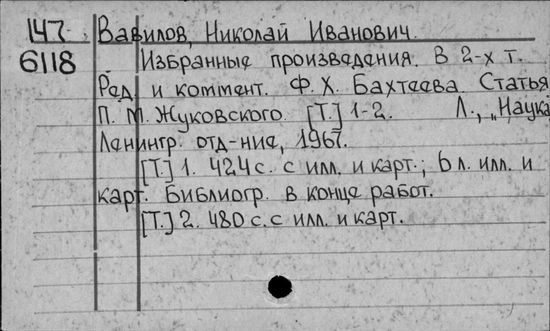 147 Вавилов, Николай Иванович.
6118 Избранные произведения. В 2-х т.
Ред. и коммент. Ф. Х. Бахтеева. Статья
П. М. Жуковского. [Т.] 1-2. Л., „Наука"
Ленингр. отд-ние, 1967.
[Т.] 1. 424 с. с илл. и карт.; 6 л. илл. и
карт. Библиогр. в конце работ.
[Т.] 2. 480 с. с илл. и карт.